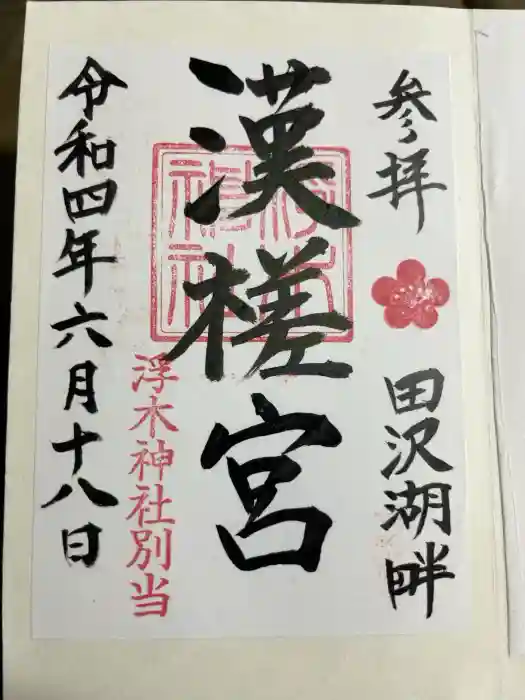 参拝
田沢湖畔
漢槎宮
浮木神社別当
令和四年六月十八日